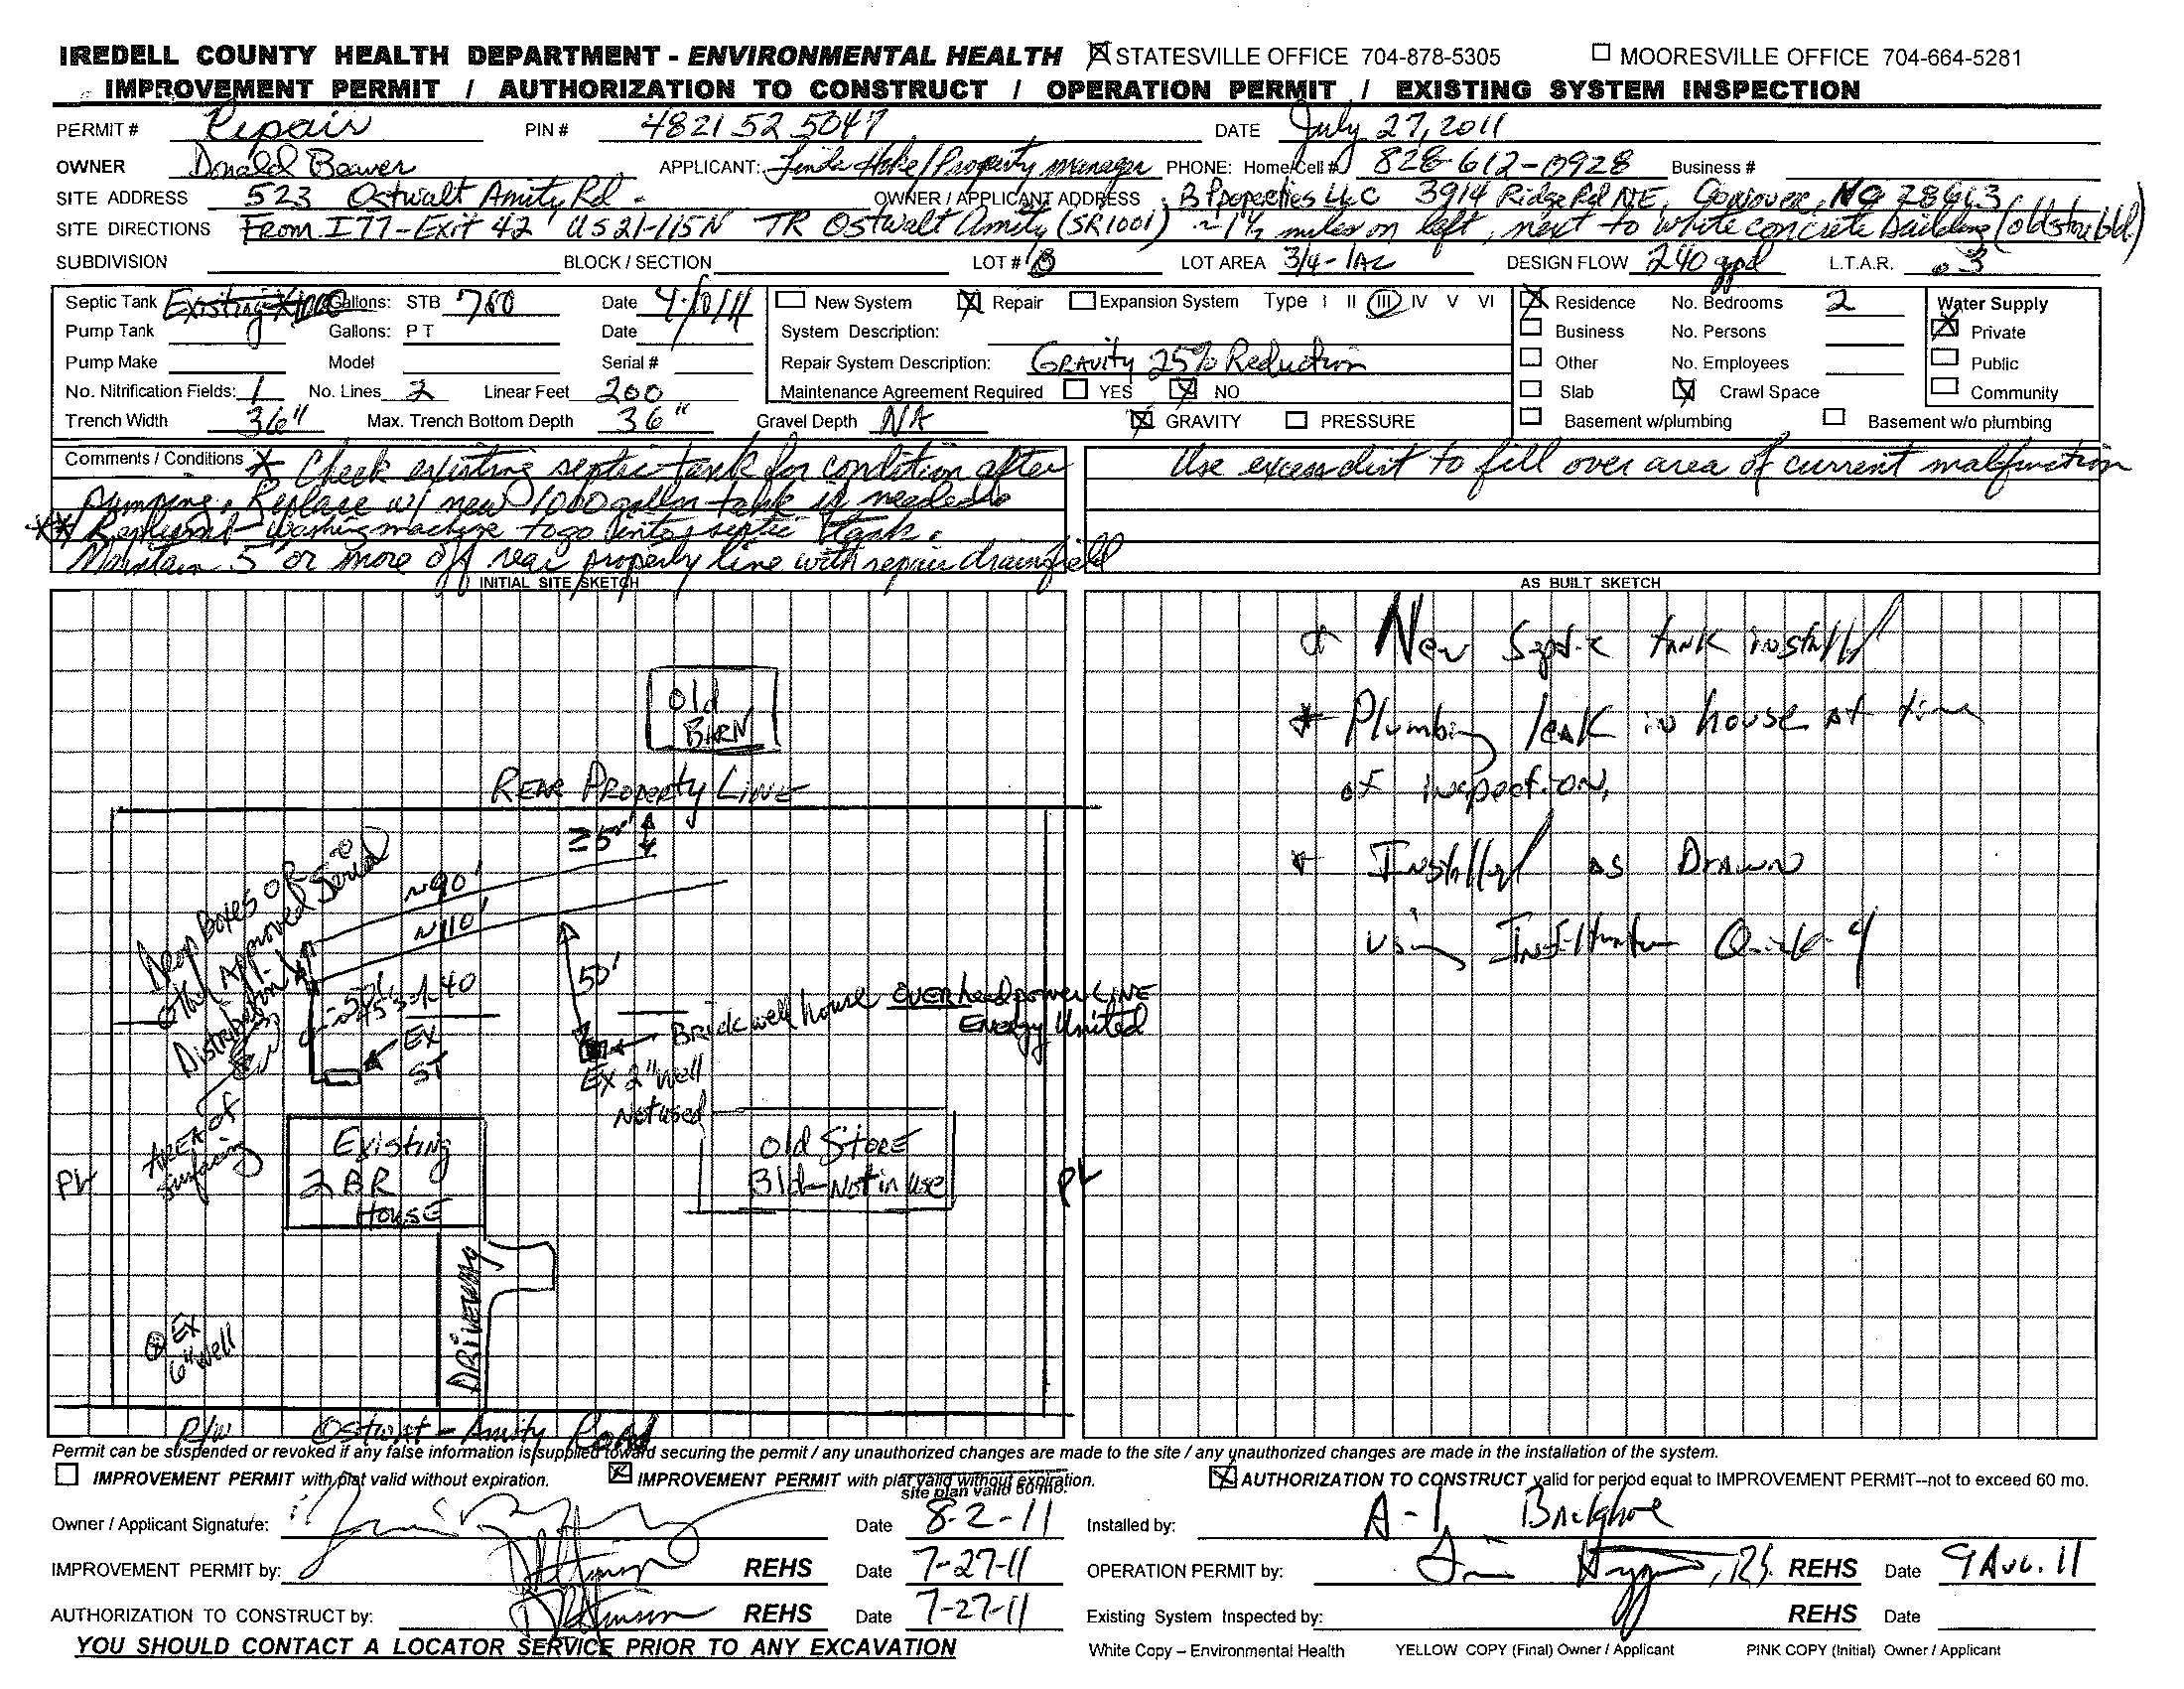 IREDELL COUNTY HEALTH DEPARTMENT - ENVIRONMENTAL HEALTH ☒ STATESVILLE OFFICE 704-878-5305 ☐ MOORESVILLE OFFICE 704-664-5281
IMPROVEMENT PERMIT / AUTHORIZATION TO CONSTRUCT / OPERATION PERMIT / EXISTING SYSTEM INSPECTION
PERMIT # Repair PIN # 4821 52 5047 DATE July 27, 2011
OWNER Donald Beaver APPLICANT: Linda Hoke/Property manager PHONE: Home/Cell # 828-612-0928 Business #
SITE ADDRESS 523 Ostwalt Amity Rd. OWNER / APPLICANT ADDRESS B Properties LLC 3914 Ridge Rd NE, Conover, NC 28613
SITE DIRECTIONS From I77-Exit 42 US21-115N TR Ostwalt Amity (SR1001) ~1½ miles on left, next to white concrete building (old store bld.)
SUBDIVISION BLOCK / SECTION LOT # LOT AREA 3/4-1AC DESIGN FLOW 240 gpd L.T.A.R. .3
Septic Tank Existing Gallons: STB 760 Date ☐ New System ☒ Repair ☐ Expansion System Type I II III IV V VI ☒ Residence No. Bedrooms 2 Water Supply
Pump Tank Gallons: P T Date System Description: ☐ Business No. Persons ☒ Private
Pump Make Model Serial # Repair System Description: Gravity 25% Reduction ☐ Other No. Employees ☐ Public
No. Nitrification Fields: 1 No. Lines 2 Linear Feet 200 Maintenance Agreement Required ☐ YES ☒ NO ☐ Slab ☒ Crawl Space ☐ Community
Trench Width 36" Max. Trench Bottom Depth 36" Gravel Depth NA ☒ GRAVITY ☐ PRESSURE ☐ Basement w/plumbing ☐ Basement w/o plumbing
Comments / Conditions * Check existing septic tank for condition after
pumping. Replace w/ new 1000 gallon tank if needed.
** Replumb washing machine to go into septic tank.
Maintain 5' or more off rear property line with repair drainfield
Use excess dirt to fill over area of current malfunction
INITIAL SITE SKETCH
Old
BARN
REAR PROPERTY LINE
≥5'
~90'
~110'
Drop Boxes OR
other Approved Serial
Distribution
50'
EX
ST
Brick well house
OVERhead power LINE
Energy United
EX 2" Well
Not used
AREA OF
Surfacing
Existing
2 BR
HOUSE
Old STORE
Bld-Not in use
PL
PL
DRIVEWAY
EX
6" Well
R/W Ostwalt - Amity Road
AS BUILT SKETCH
* New Septic tank install
* Plumbing leak in house at time
of inspection.
* Installed as Drawn
using Infiltrator Quick-4
Permit can be suspended or revoked if any false information is supplied toward securing the permit / any unauthorized changes are made to the site / any unauthorized changes are made in the installation of the system.
☐ IMPROVEMENT PERMIT with plat valid without expiration. ☒ IMPROVEMENT PERMIT with plat valid without expiration. ☒ AUTHORIZATION TO CONSTRUCT valid for period equal to IMPROVEMENT PERMIT--not to exceed 60 mo.
site plan valid 60 mo.
Owner / Applicant Signature: Date 8-2-11 Installed by: A-1 Backhoe
IMPROVEMENT PERMIT by: REHS Date 7-27-11 OPERATION PERMIT by: REHS Date 9 Aug. 11
AUTHORIZATION TO CONSTRUCT by: REHS Date 7-27-11 Existing System Inspected by: REHS Date
YOU SHOULD CONTACT A LOCATOR SERVICE PRIOR TO ANY EXCAVATION White Copy – Environmental Health YELLOW COPY (Final) Owner / Applicant PINK COPY (Initial) Owner / Applicant